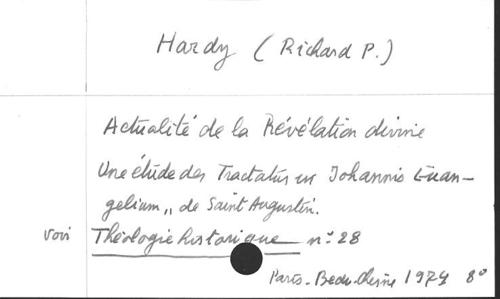 Hardy (Richard P.)
Actualité de la Révélation divine
Une étude des Tractatus in Johannis Euan-
gelium„ de Saint Augustin.
voir Théologie historique n° 28
Paris. Beauchesne 1974 8°